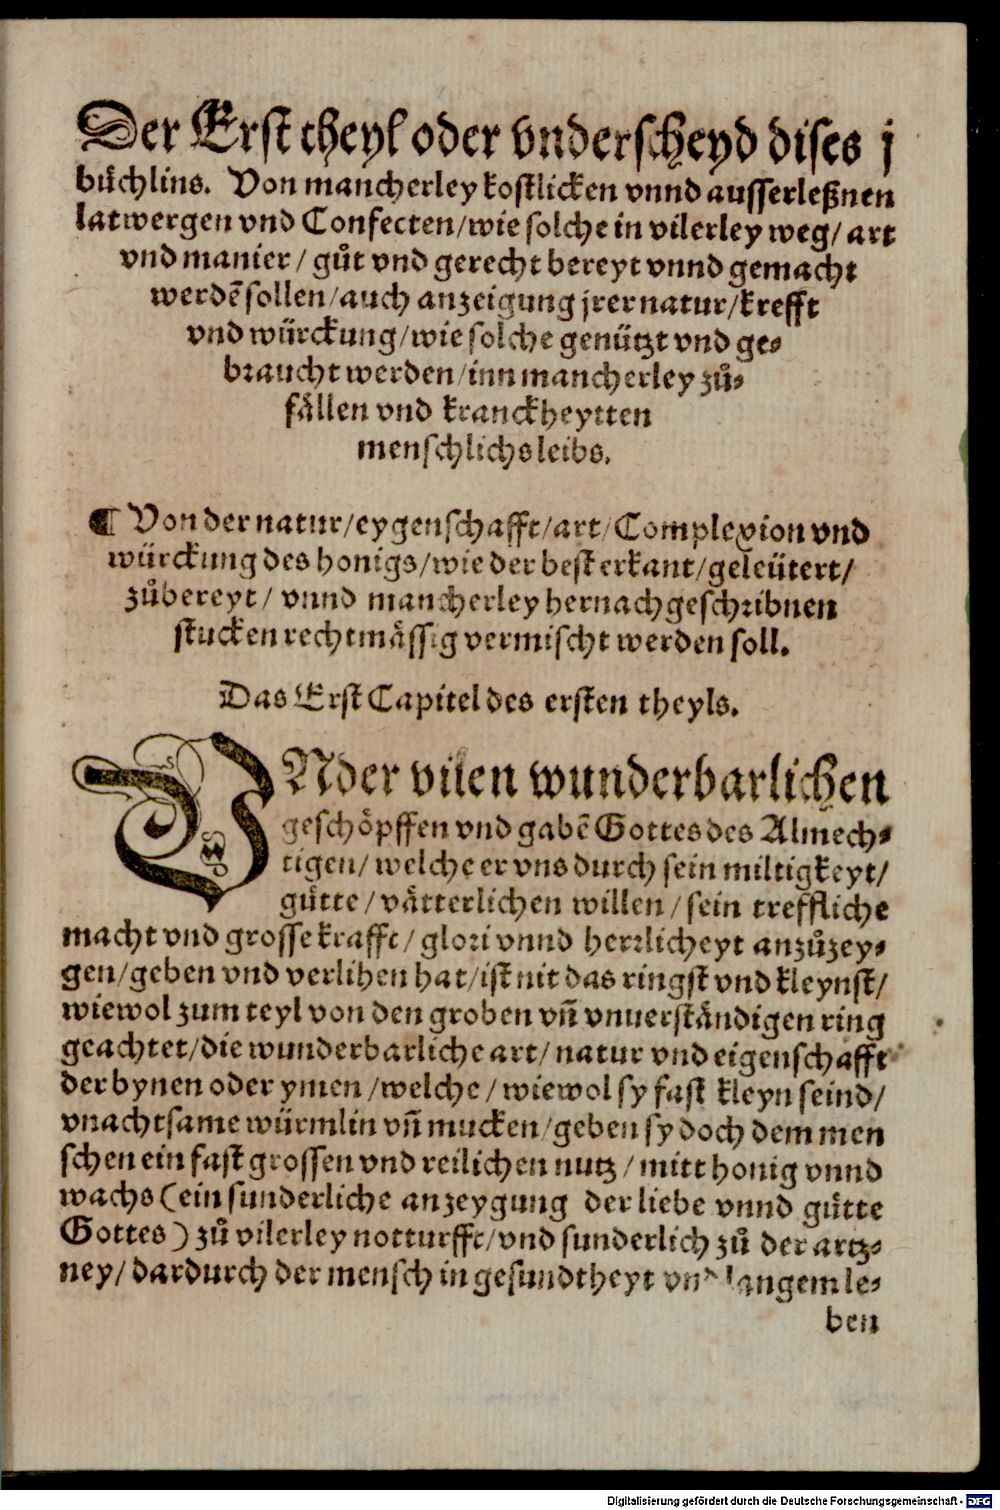 Der Erst theyl oder vnderscheyd dises j
bůchlins. Von mancherley kostlicken vnnd ausserleßnen
latwergen vnd Confecten/wie solche in vilerley weg/ art
vnd manier/ gůt vnd gerecht bereyt vnnd gemacht
werdẽ sollen/auch anzeigung jrer natur/krefft
vnd würckung/wie solche genützt vnd ge⸗
braucht werden/inn mancherley zů⸗
fällen vnd kranckheytten
menschlichs leibs.
¶ Von der natur/eygenschafft/art/Complexion vnd
würckung des honigs/wie der best erkant/geleütert/
zůbereyt/ vnnd mancherley hernachgeschribnen
stucken rechtmässig vermischt werden soll.
Das Erst Capitel des ersten theyls.
VNder vilen wunderbarlichen
geschöpffen vnd gabẽ Gottes des Almech⸗
tigen/ welche er vns durch sein miltigkeyt/
gütte/vätterlichen willen/sein treffliche
macht vnd grosse krafft/ glori vnnd herrlicheyt anzůzey⸗
gen/geben vnd verlihen hat/ist nit das ringst vnd kleynst/
wiewol zum teyl von den groben vñ vnuerständigen ring
geachtet/die wunderbarliche art/natur vnd eigenschafft
der bynen oder ymen/welche/ wiewol sy fast kleyn seind/
vnachtsame würmlin vñ mucken/geben sy doch dem men
schen ein fast grossen vnd reilichen nutz/mitt honig vnnd
wachs (ein sunderliche anzeygung der liebe vnnd gütte
Gottes) zů vilerley notturfft/vnd sunderlich zů der artz⸗
ney/ dardurch der mensch in gesundtheyt vnd langem le⸗
ben
Digitalisierung gefördert durch die Deutsche Forschungsgemeinschaft - DFG